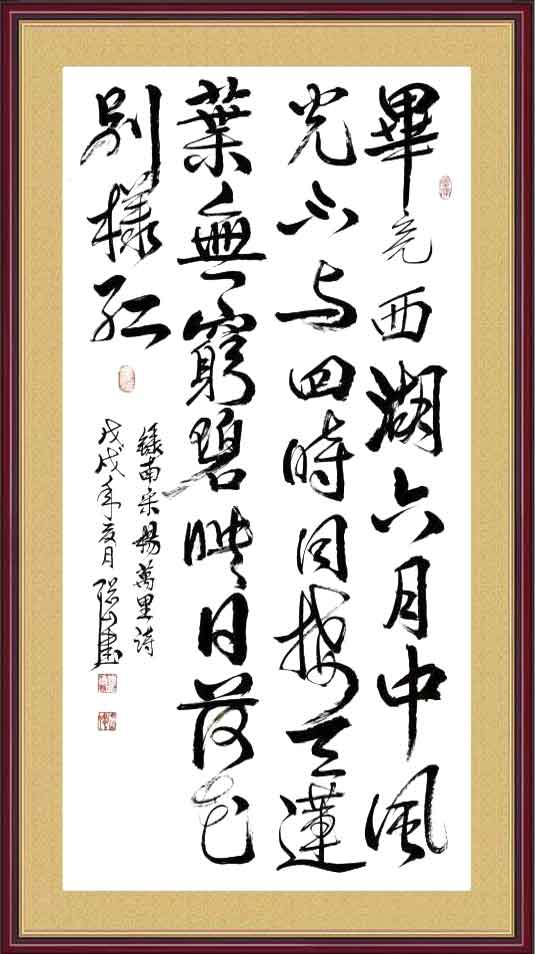 畢竟西湖六月中風
光不与四時同接天蓮
葉無窮碧映日荷花
別樣紅
錄南宋楊萬里詩
戊戌年夏月